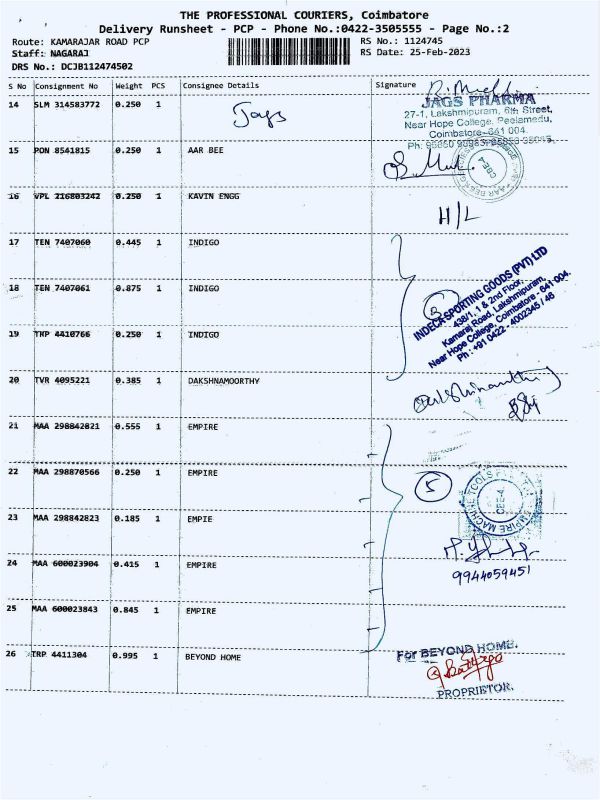 THE PROFESSIONAL COURIERS, Coimbatore
Delivery Runsheet - PCP - Phone No.:0422-3505555 - Page No.:2
Route: KAMARAJAR ROAD PCP
RS No.: 1124745
Staff: NAGARAJ
RS Date: 25-Feb-2023
DRS No.: DCJB112474502
S No Consignment No Weight PCS Consignee Details Signature
14 SLM 314583772 0.250 1 Jags
JAGS PHARMA
27-1, Lakshmipuram, 6th Street,
Near Hope College, Peelamedu,
Coimbatore-641 004.
15 PON 8541815 0.250 1 AAR BEE
16 VPL 216803242 0.250 1 KAVIN ENGG
H/L
17 TEN 7407060 0.445 1 INDIGO
18 TEN 7407061 0.875 1 INDIGO
3
INDECA SPORTING GOODS (PVT) LTD
438/1, 1 & 2nd Floor,
Kamaraj Road, Lakshmipuram,
Near Hope College, Coimbatore - 641 004.
Ph : +91 0422 - 4002345 / 46
19 TRP 4410766 0.250 1 INDIGO
20 TVR 4095221 0.385 1 DAKSHNAMOORTHY
21 MAA 298842821 0.555 1 EMPIRE
22 MAA 298870566 0.250 1 EMPIRE
5
EMPIRE MACHINE TOOLS
CBE-4
23 MAA 298842823 0.185 1 EMPIE
24 MAA 600023904 0.415 1 EMPIRE
9944059451
25 MAA 600023843 0.845 1 EMPIRE
26 TRP 4411304 0.995 1 BEYOND HOME
For BEYOND HOME.
PROPRIETOR.